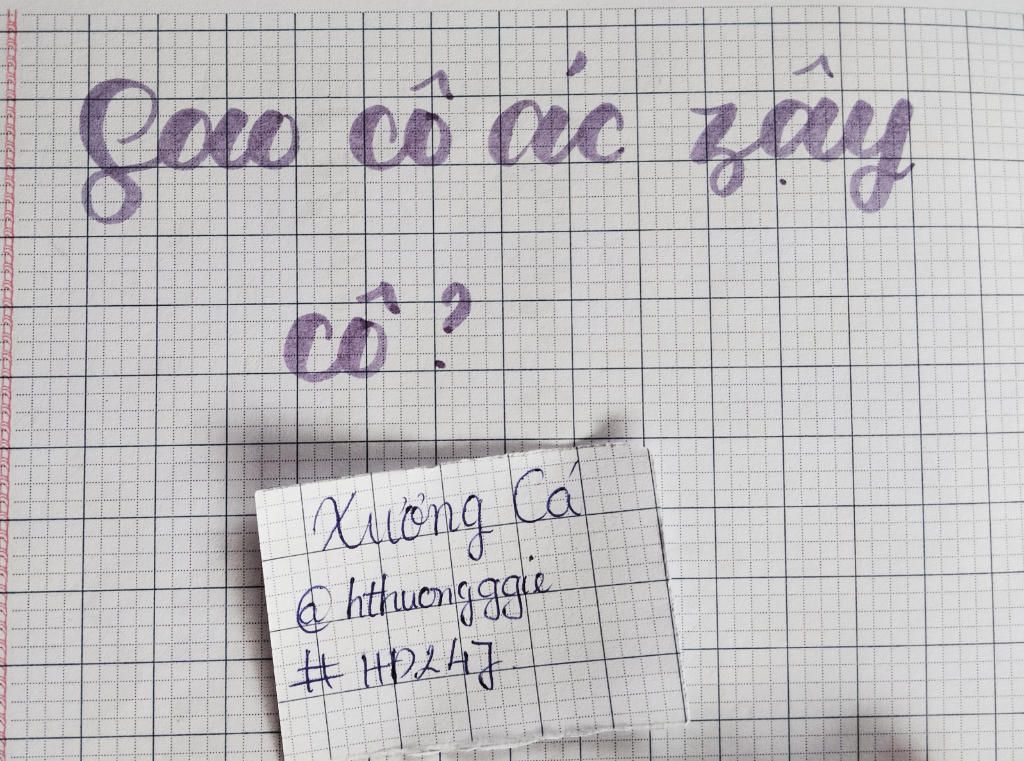 Sao cô ác zậy
cô?
Xương Cá
@hthuongggie
#HD247